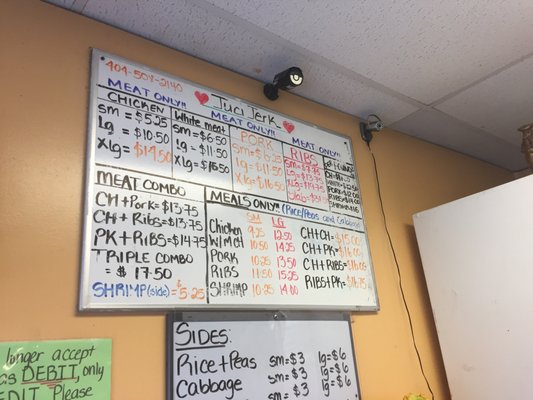 404-504-2140
Juci Jerk
MEAT ONLY!!
CHICKEN
sm = $5.25
Lg = $10.50
XLg = $14.50
MEAT ONLY!!
White meat
sm = $6.50
Lg = $11.50
XLg = $15.50
PORK
sm = $6.25
Lg = $11.50
XLg = $16.50
MEAT ONLY!!
RIBS
MEAT COMBO
CH + Pork = $13.75
CH + Ribs = $13.75
PK + RIBS = $14.75
TRIPLE COMBO
= $17.50
SHRIMP (side) = $5.25
MEALS ONLY* (Rice/Peas and Cabbage)
SM LG
Chicken 9.25 12.50
W/Meat 10.50 14.25
PORK 10.25 13.50
RIBS 11.50 15.25
SHRIMP 10.25 14.00
CH + CH = $15.00
CH + PK = $16.00
CH + RIBS = $16.00
RIBS + PK = $16.75
SIDES:
Rice + Peas sm = $3 lg = $6
Cabbage sm = $3 lg = $6
sm = $3 lg = $6
longer accept
DEBIT, only
EDIT Please